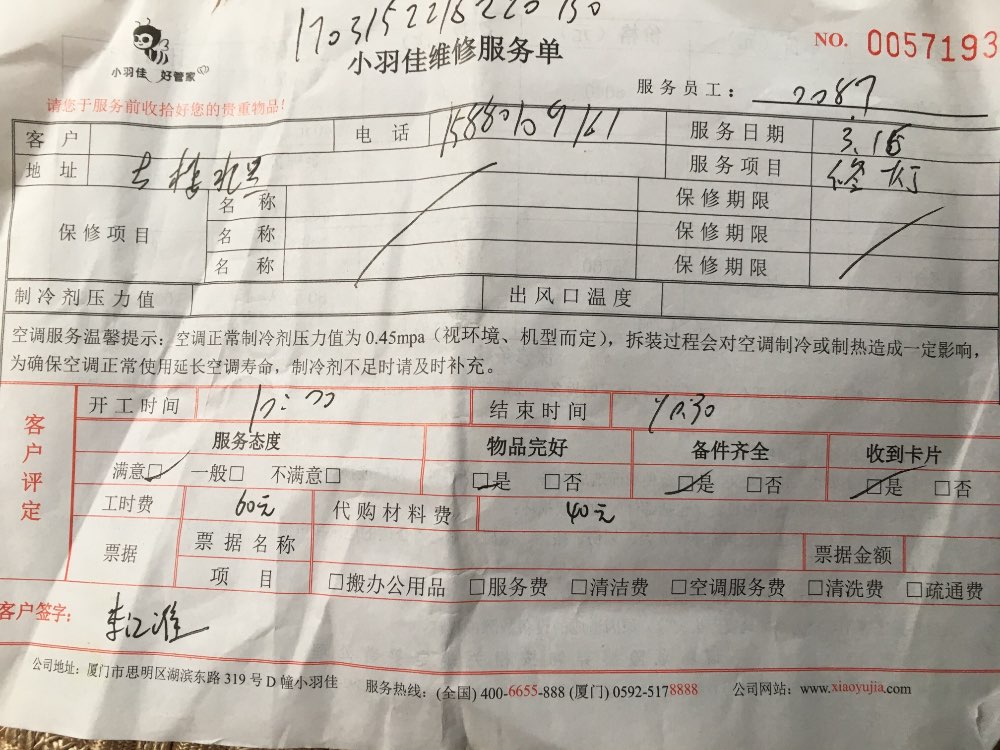 小羽佳 好管家
小羽佳维修服务单
NO. 0057193
请您于服务前收拾好您的贵重物品!
服务员工: 2087
客户 电话 15880109161 服务日期 3.15
地址 服务项目 修灯
保修项目 名称 保修期限
名称 保修期限
名称 保修期限
制冷剂压力值 出风口温度
空调服务温馨提示：空调正常制冷剂压力值为 0.45mpa（视环境、机型而定），拆装过程会对空调制冷或制热造成一定影响，
为确保空调正常使用延长空调寿命，制冷剂不足时请及时补充。
客户评定
开工时间 结束时间
服务态度 物品完好 备件齐全 收到卡片
满意□ 一般□ 不满意□ □是 □否 □是 □否 □是 □否
工时费 60元 代购材料费 40元
票据 票据名称 票据金额
项目 □搬办公用品 □服务费 □清洁费 □空调服务费 □清洗费 □疏通费
客户签字：
公司地址：厦门市思明区湖滨东路 319 号 D 幢小羽佳 服务热线：(全国) 400-6655-888 (厦门) 0592-5178888 公司网站：www.xiaoyujia.com